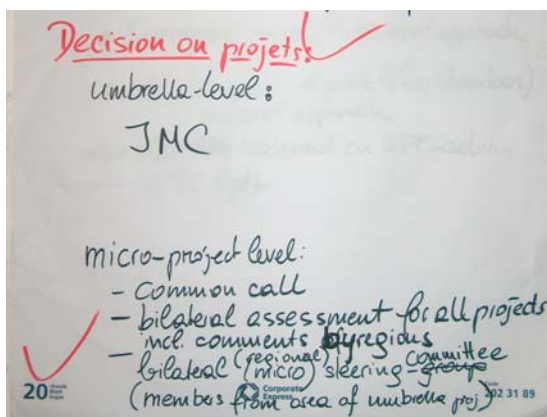 Decision on projets:
umbrella-level:
JMC
micro-project level:
- Common call
- bilateral assessment for all projects
incl. comments by regions
- bilateral (regional) (micro) steering - group committee
(members from area of umbrella proj.)
20
Corporate
Express
202 31 89